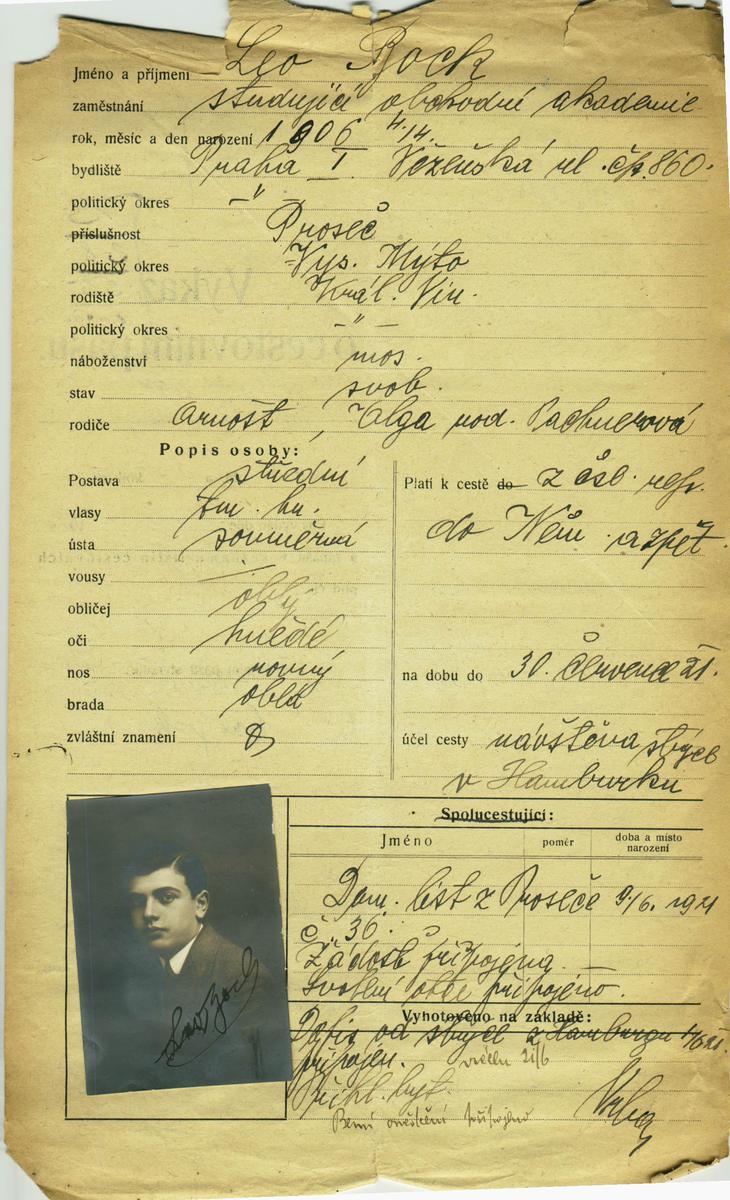 Jméno a příjmení Leo Bock
zaměstnání studující obchodní akademie
rok, měsíc a den narození 1906 4/14.
bydliště Praha I Vězeňská ul. čp. 860.
politický okres — " —
příslušnost Proseč
politický okres Vys. Mýto
rodiště Král. Vin.
politický okres — " —
náboženství mos.
stav svob.
rodiče Arnošt, Olga rod. Pachnerová
Popis osoby:
Postava střední
vlasy tm. hn.
ústa souměrná
vousy —
obličej oblý
oči hnědé
nos rovný
brada oblá
zvláštní znamení
Platí k cestě do z čsl. rep.
do Něm. a zpět.
na dobu do 30. července 21.
účel cesty návštěva strýce
v Hamburku
Spolucestující:
Jméno poměr doba a místo narození
Dom. list z Proseče 9/6. 1921
č. 36.
Žádost připojena
Svolení otce připojeno.
Vyhotoveno na základě:
Dopis od strýce z Hamburgu
připojen.
Přihl. byt.
připojeno
Leo Bock